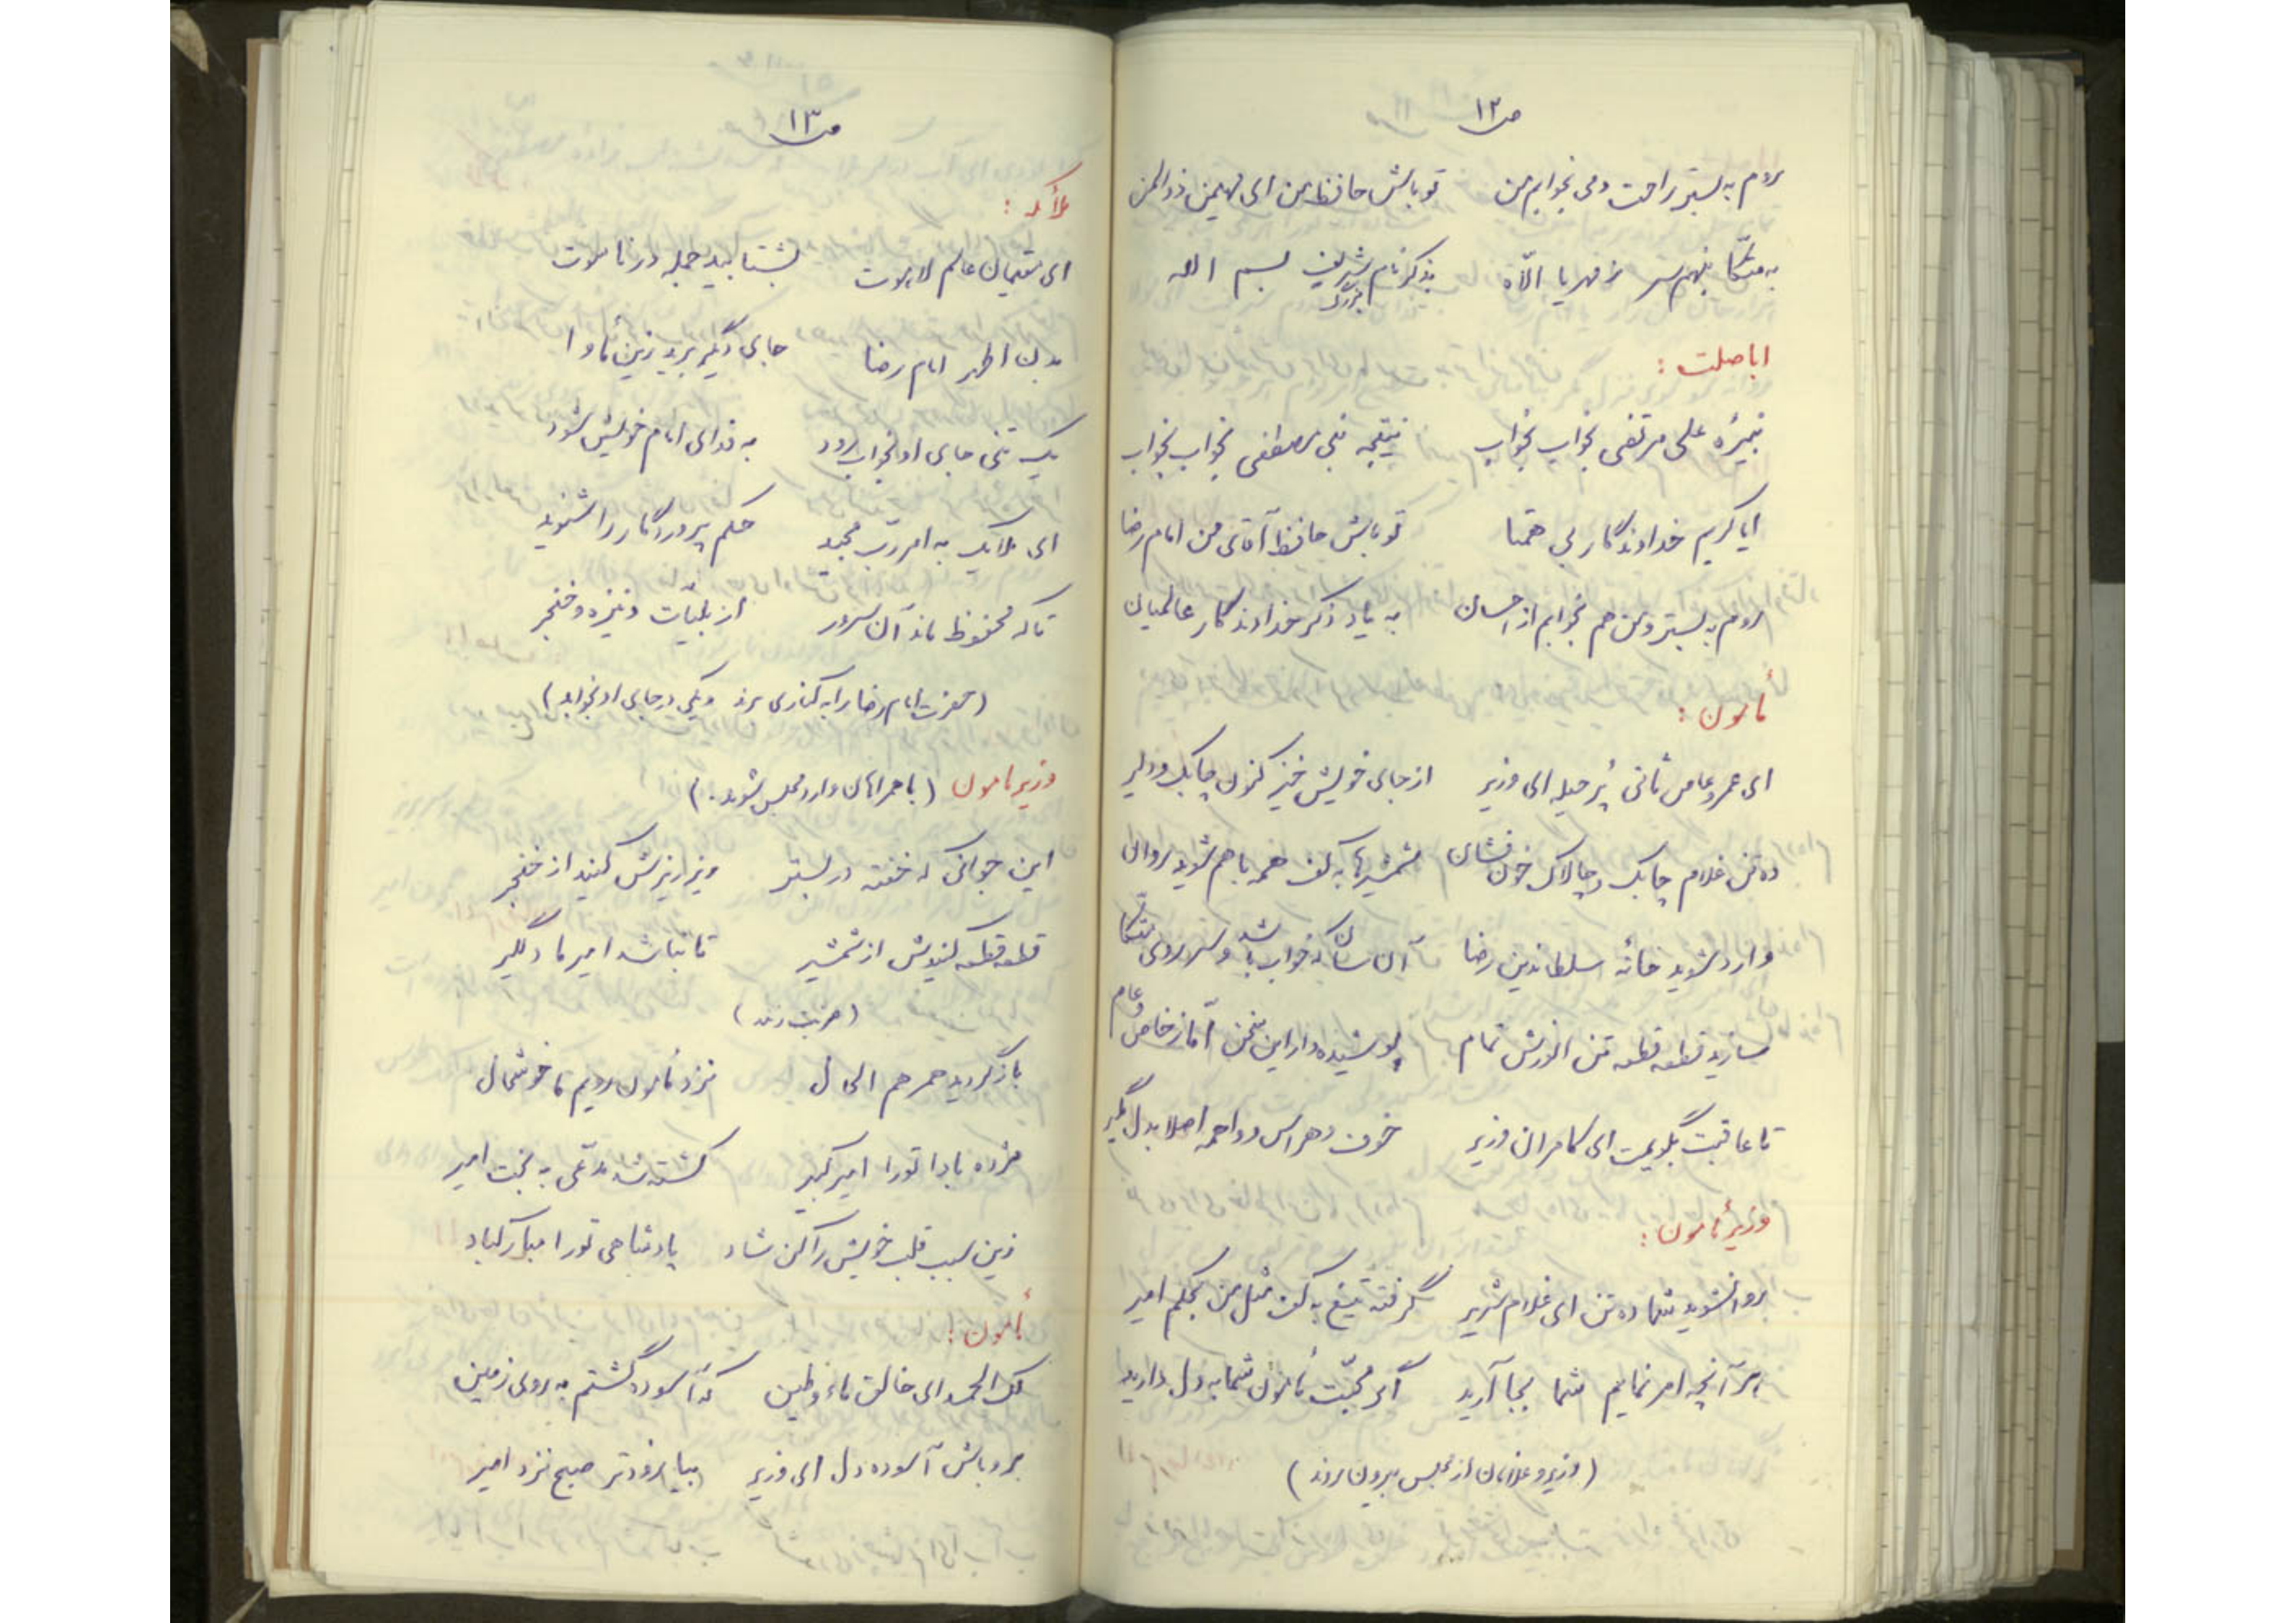 ص۱۲
روم به بستر راحت دمی بخوابم من تو باش حافظ من ای مهیمن ذوالمن
به متکّا بنهم سر ز مهر یا اللّاه بذکر نام شریف بسم الله
بزرگ
اباصلت :
نبیرهٔ علی مرتضی بخواب بخواب نتیجه نبی مصطفی بخواب بخواب
ایا کریم خداوندگار بی همتا تو باش حافظ آقای من امام رضا
روم به بستر و من هم بخوابم از احسان به یاد ذکر خداوندگار عالمیان
مأمون :
ای عمرو عاص ثانی پُر حیله ای وزیر از جای خویش خیز کنون چابک و دلیر
ده تن غلام چابک و چالاک خون فشان شمشیرها به کف همه با هم شوید روان
وارد شوید خانه سلطاندین رضا آن سان که خواب باشد و سر بروی متکّا
سازید قطعه قطعه تن انورش تمام پوشیده دار این سخن امّا ز خاص و عام
تا عاقبت بگویمت ای کامران وزیر خوف و هراس و واهمه اصلا بدل مگیر
وزیر مأمون :
روانشوید شما ده تن ای غلام شریر گرفته تیغ به کف مثل من بحکم امیر
هر آنچه امر نمایم شما بجا آرید اگر محبّت مأمون شما به دل دارید
(وزیر و غلامان از مجلس بیرون روند)
ص۱۳
ملائکه :
ای مقیمان عالم لاهوت بشتابید جمله در ناسوت
بدن اطهر امام رضا جای دیگر برید زین مأوا
یک تنی جای او بخواب رود به فدای امام خویش شود
ای ملایک به امر ربّ مجید حکم پروردگار را شنوید
تا که محفوظ ماند آن سرور از بلیّات و نیزه و خنجر
(حضرت امام رضا را به کناری برند و یکی در جای او بخوابد)
وزیر مامون (با همراهان وارد مجلس شوند.)
این جوانی که خفته در بستر ریز ریزش کنید از خنجر
قطعه قطعه کنیدش از شمشیر تا نباشد امیر ما دلگیر
(ضربت زنند)
بازگردید همرهم الحال نزد مأمون رویم ما خوشحال
مژده بادا تو را امیر کبیر کشته شد مدّعی به بخت امیر
زین سبب قلب خویش را کن شاد پادشاهی تو را مبارکباد
مأمون :
لک الحمد ای خالق ماء و طین که آسوده گشتم به روی زمین
برو باش آسوده دل ای وزیر بیا زودتر صبح نزد امیر